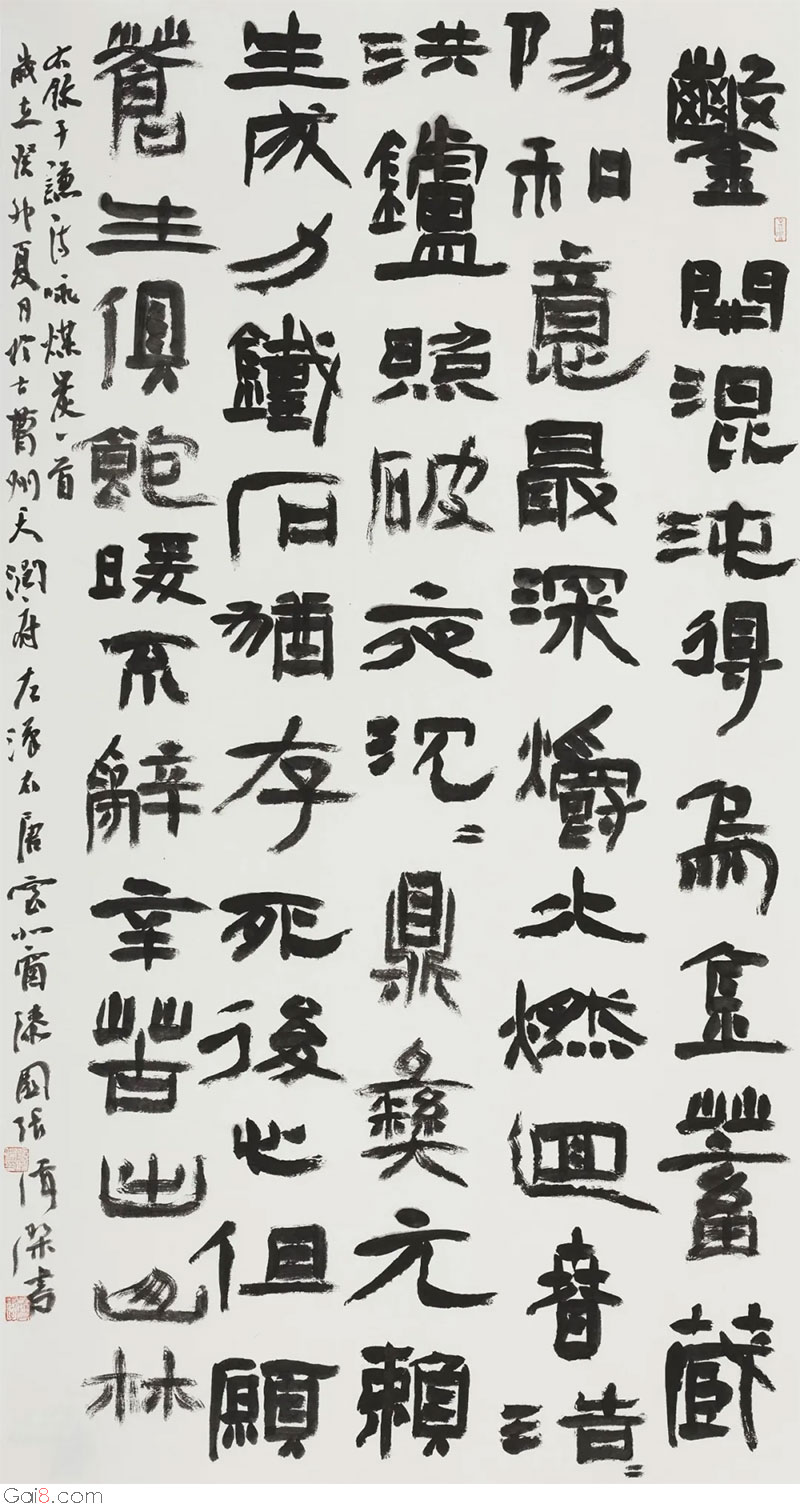 鑿開混沌得烏金蓄藏
陽和意最深爝火燃回春浩=
洪鑪照破夜沉=鼎彝元賴
生成力鐵石猶存死後心但願
蒼生俱飽暖不辭辛苦出山林
右錄于謙詩咏煤炭一首
歲在癸卯夏日於古曹州天潤府左海右居雲心齋張國
Gai8.com